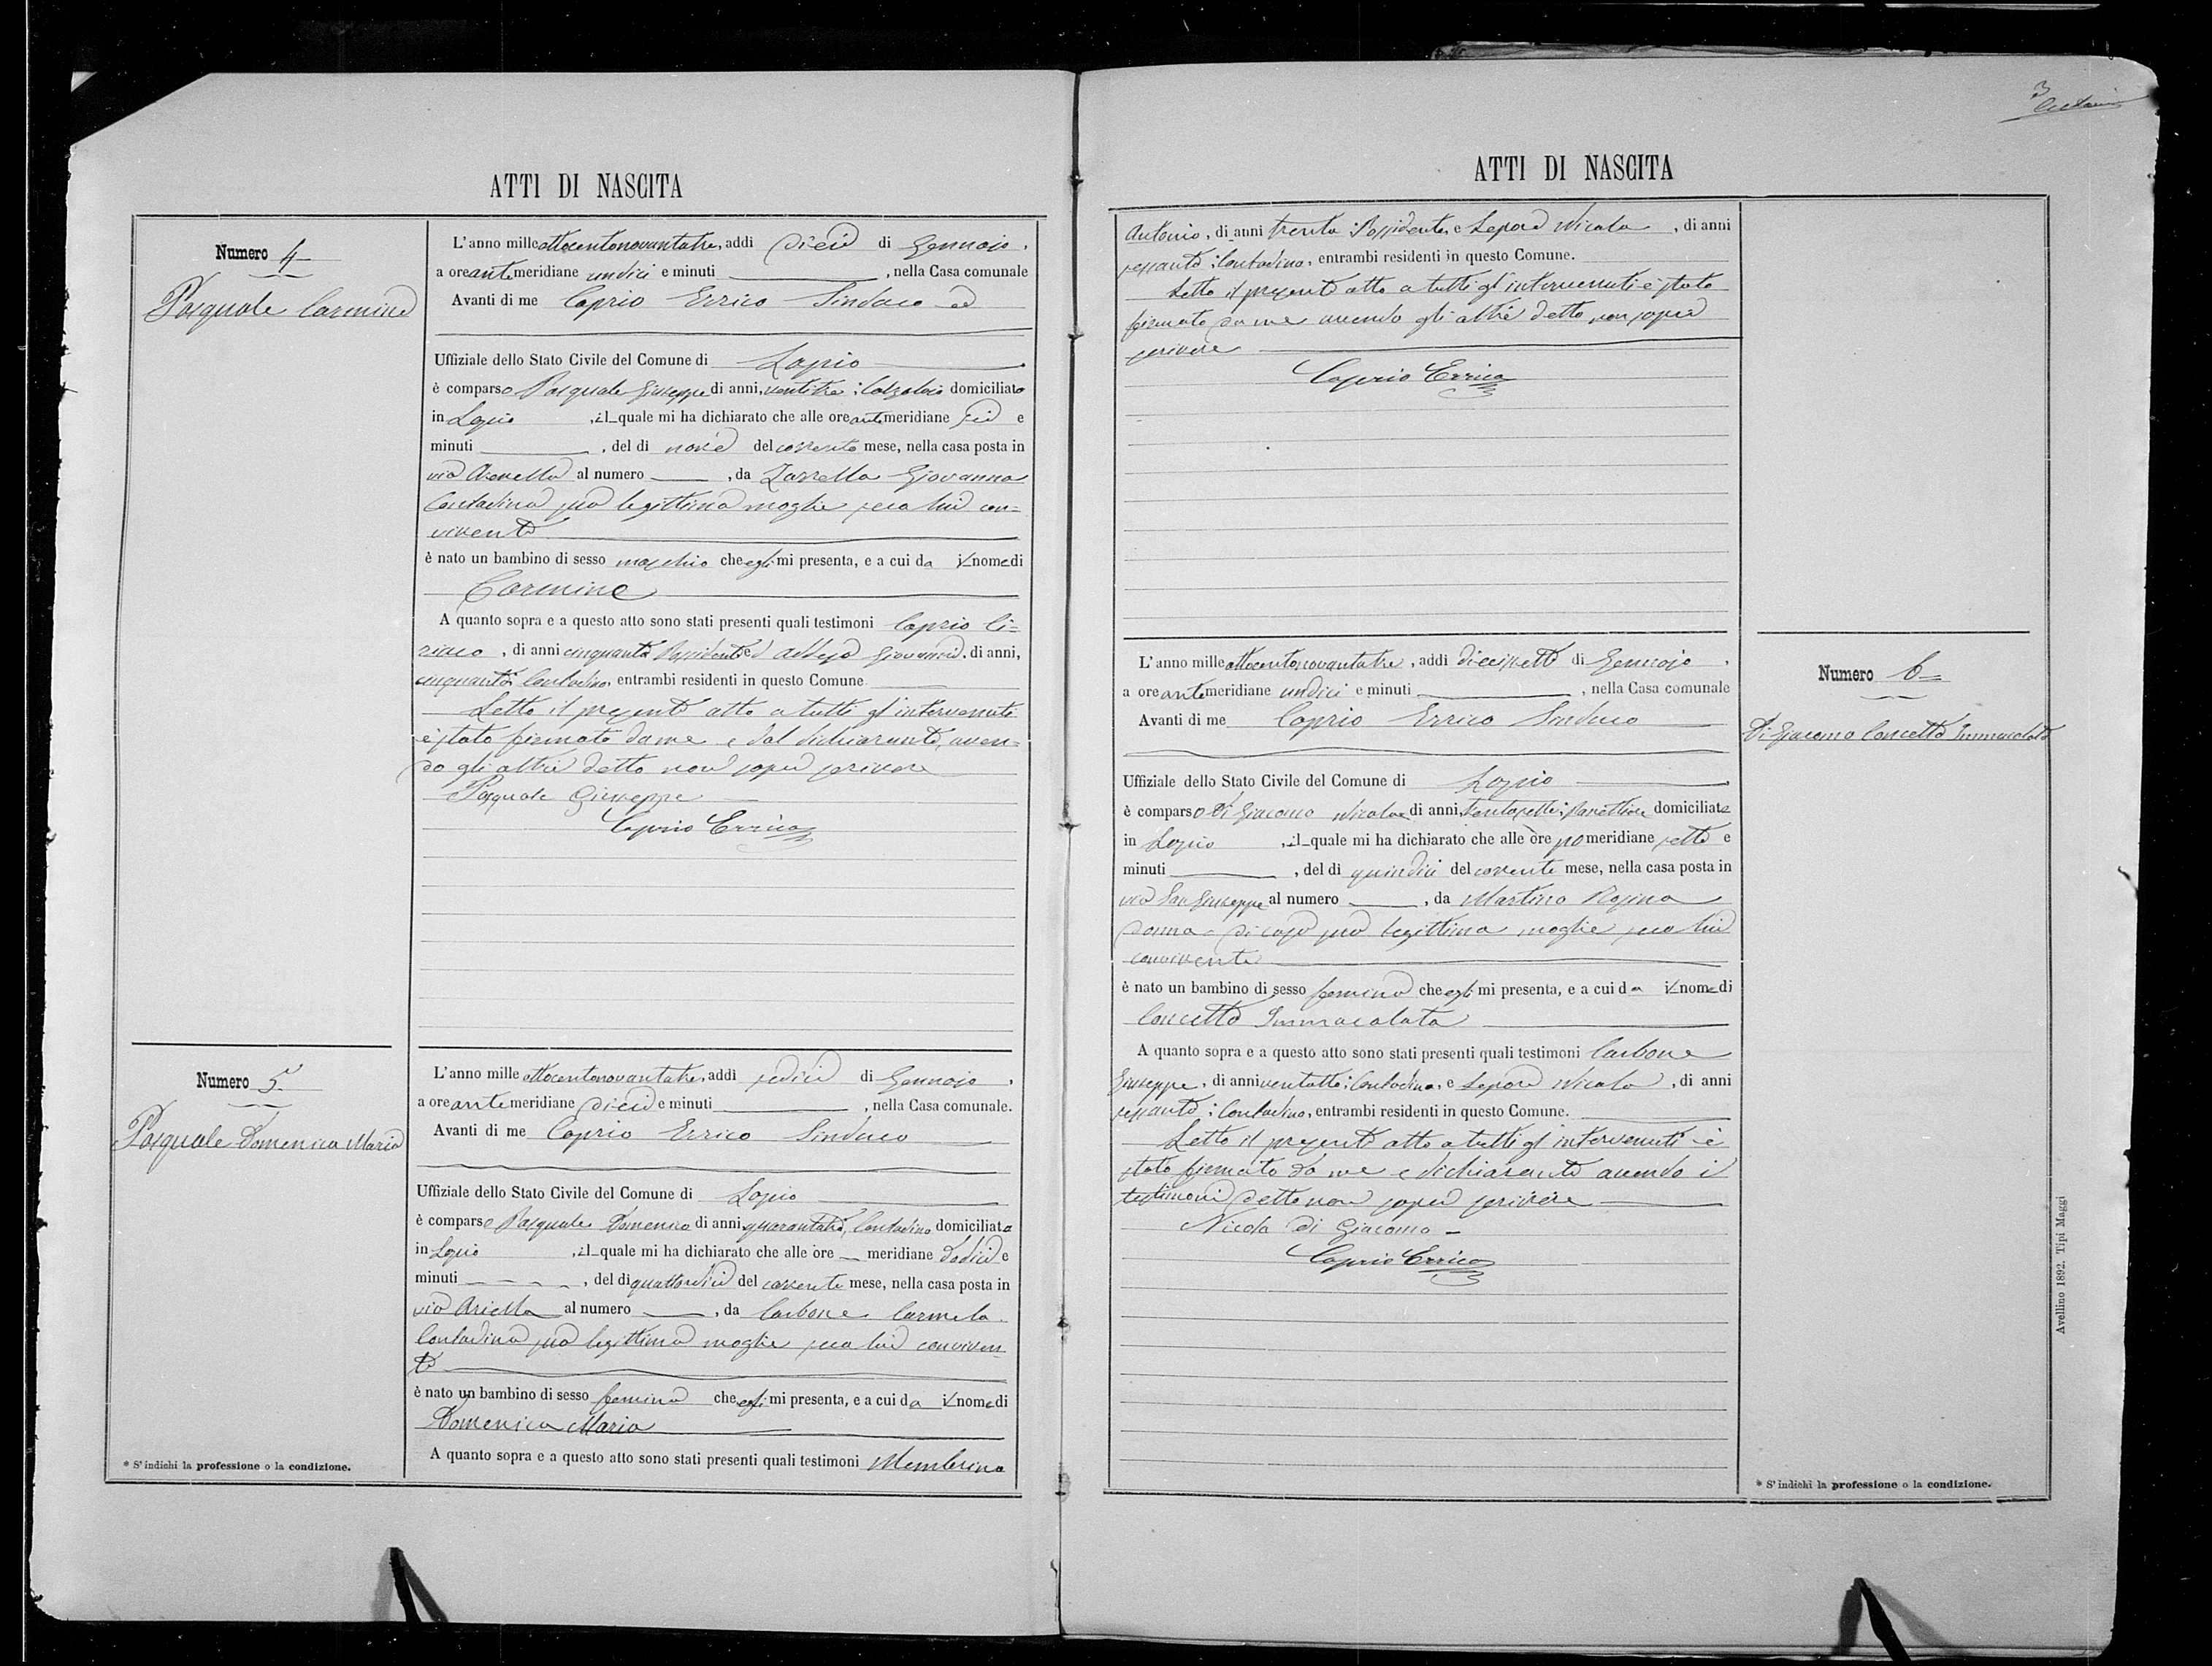 3
ATTI DI NASCITA
Numero 4
Pasquale Carmine
L'anno mille ottocentonovantatre, addì dieci di Gennajo,
a ore antimeridiane undici e minuti ____, nella Casa comunale
Avanti di me Caprio Errico Sindaco ed
Uffiziale dello Stato Civile del Comune di Lapio
è comparso Pasquale Giuseppe di anni, ventitre; Calzolaio domiciliato
in Lapio, il quale mi ha dichiarato che alle ore antimeridiane sei e
minuti ____, del dì nove del corrente mese, nella casa posta in
via Arenella al numero ____, da Zarrella Giovanna
Contadina sua legittima moglie seco lui con=
vivente
è nato un bambino di sesso maschio che egli mi presenta, e a cui da il nome di
Carmine
A quanto sopra e a questo atto sono stati presenti quali testimoni Caprio Ci=
riaco, di anni cinquanta Possidente e Giovanni, di anni,
cinquanta Contadino, entrambi residenti in questo Comune
Letto il presente atto a tutti gl'intervenuti
è stato firmato da me e dal dichiarante, aven=
do gli altri detto non saper scrivere
Pasquale Giuseppe
Caprio Errico
Numero 5
Pasquale Domenica Maria
L'anno mille ottocentonovantatre, addì sedici di Gennajo,
a ore antemeridiane dieci e minuti ____, nella Casa comunale.
Avanti di me Caprio Errico Sindaco
Uffiziale dello Stato Civile del Comune di Lapio
è comparso Pasquale Domenico di anni quarantatre, Contadino domiciliato
in Lapio, il quale mi ha dichiarato che alle ore — meridiane dodici e
minuti ____, del dì quattordici del corrente mese, nella casa posta in
via Ariella al numero ____, da Carbone Carmela
Contadina sua legittima moglie seco lui conviven=
te
è nato un bambino di sesso femina che egli mi presenta, e a cui da il nome di
Domenica Maria
A quanto sopra e a questo atto sono stati presenti quali testimoni Membrino
* S'indichi la professione o la condizione.
ATTI DI NASCITA
Antonio, di anni trenta; Possidente, e Lepore Nicola, di anni
sessanta; Contadino, entrambi residenti in questo Comune.
Letto il presente atto a tutti gl'intervenuti è stato
firmato da me avendo gli altri detto non saper
scrivere
Caprio Errico
Numero 6
Di Giacomo Concetta Immacolata
L'anno mille ottocentonovantatre, addì diecisette di Gennajo,
a ore antemeridiane undici e minuti ____, nella Casa comunale
Avanti di me Caprio Errico Sindaco
Uffiziale dello Stato Civile del Comune di Lapio
è comparso Di Giacomo Nicola di anni, trentasette; Panettiere domiciliato
in Lapio, il quale mi ha dichiarato che alle ore pomeridiane sette e
minuti ____, del dì quindici del corrente mese, nella casa posta in
via San Giuseppe al numero ____, da Martino Rosina
Donna di casa sua legittima moglie seco lui
convivente
è nato un bambino di sesso femina che egli mi presenta, e a cui da il nome di
Concetta Immacolata
A quanto sopra e a questo atto sono stati presenti quali testimoni Carbone
Giuseppe, di anni ventotto; Contadino, e Lepore Nicola, di anni
sessanta; Contadino, entrambi residenti in questo Comune.
Letto il presente atto a tutti gl'intervenuti è
stato firmato da me e dichiarante avendo i
testimoni detto non saper scrivere
Nicola Di Giacomo
Caprio Errico
* S'indichi la professione o la condizione.
Avellino 1892. Tipi Maggi